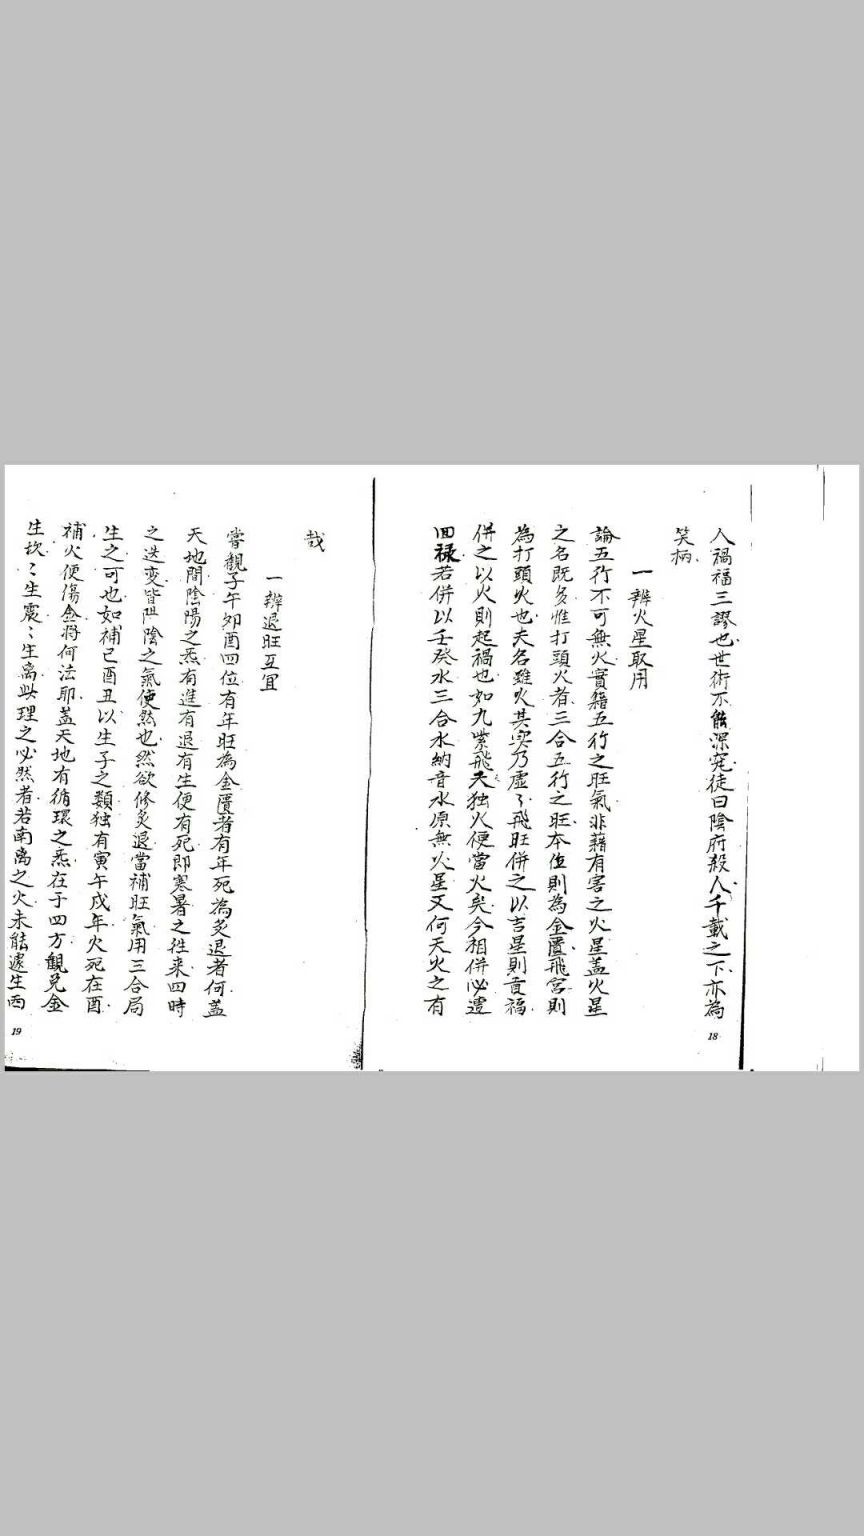 人禍福三謬也世術不能深究徒曰陰府殺人千載之下亦為
笑柄
一辨火星取用
論五行不可無火實籍五行之旺氣非藉有害之火星盖火星
之名既多惟打頭火者三合五行之旺本位則為金匱飛宮則
為打頭火也夫名雖火其实乃虛〻飛旺併之以吉星則貢福
併之以火則起禍也如九紫飛天独火便當火矣今相併必遭
回禄若併以壬癸水三合水納音水原無火星又何天火之有
18
哉
一辨退旺互宜
嘗觀子午卯酉四位有年旺為金匱者有年死為炙退者何盖
天地間陰陽之炁有進有退有生便有死即寒暑之往来四時
之迭変皆阳陰之氣使然也然欲修炙退當補旺氣用三合局
生之可也如補己酉丑以生子之類独有寅午戌年火死在酉
補火便傷金將何法耶盖天地有循環之炁在于四方觀兑金
生坎〻生震〻生离此理之必然者若南离之火未能遽生西
19